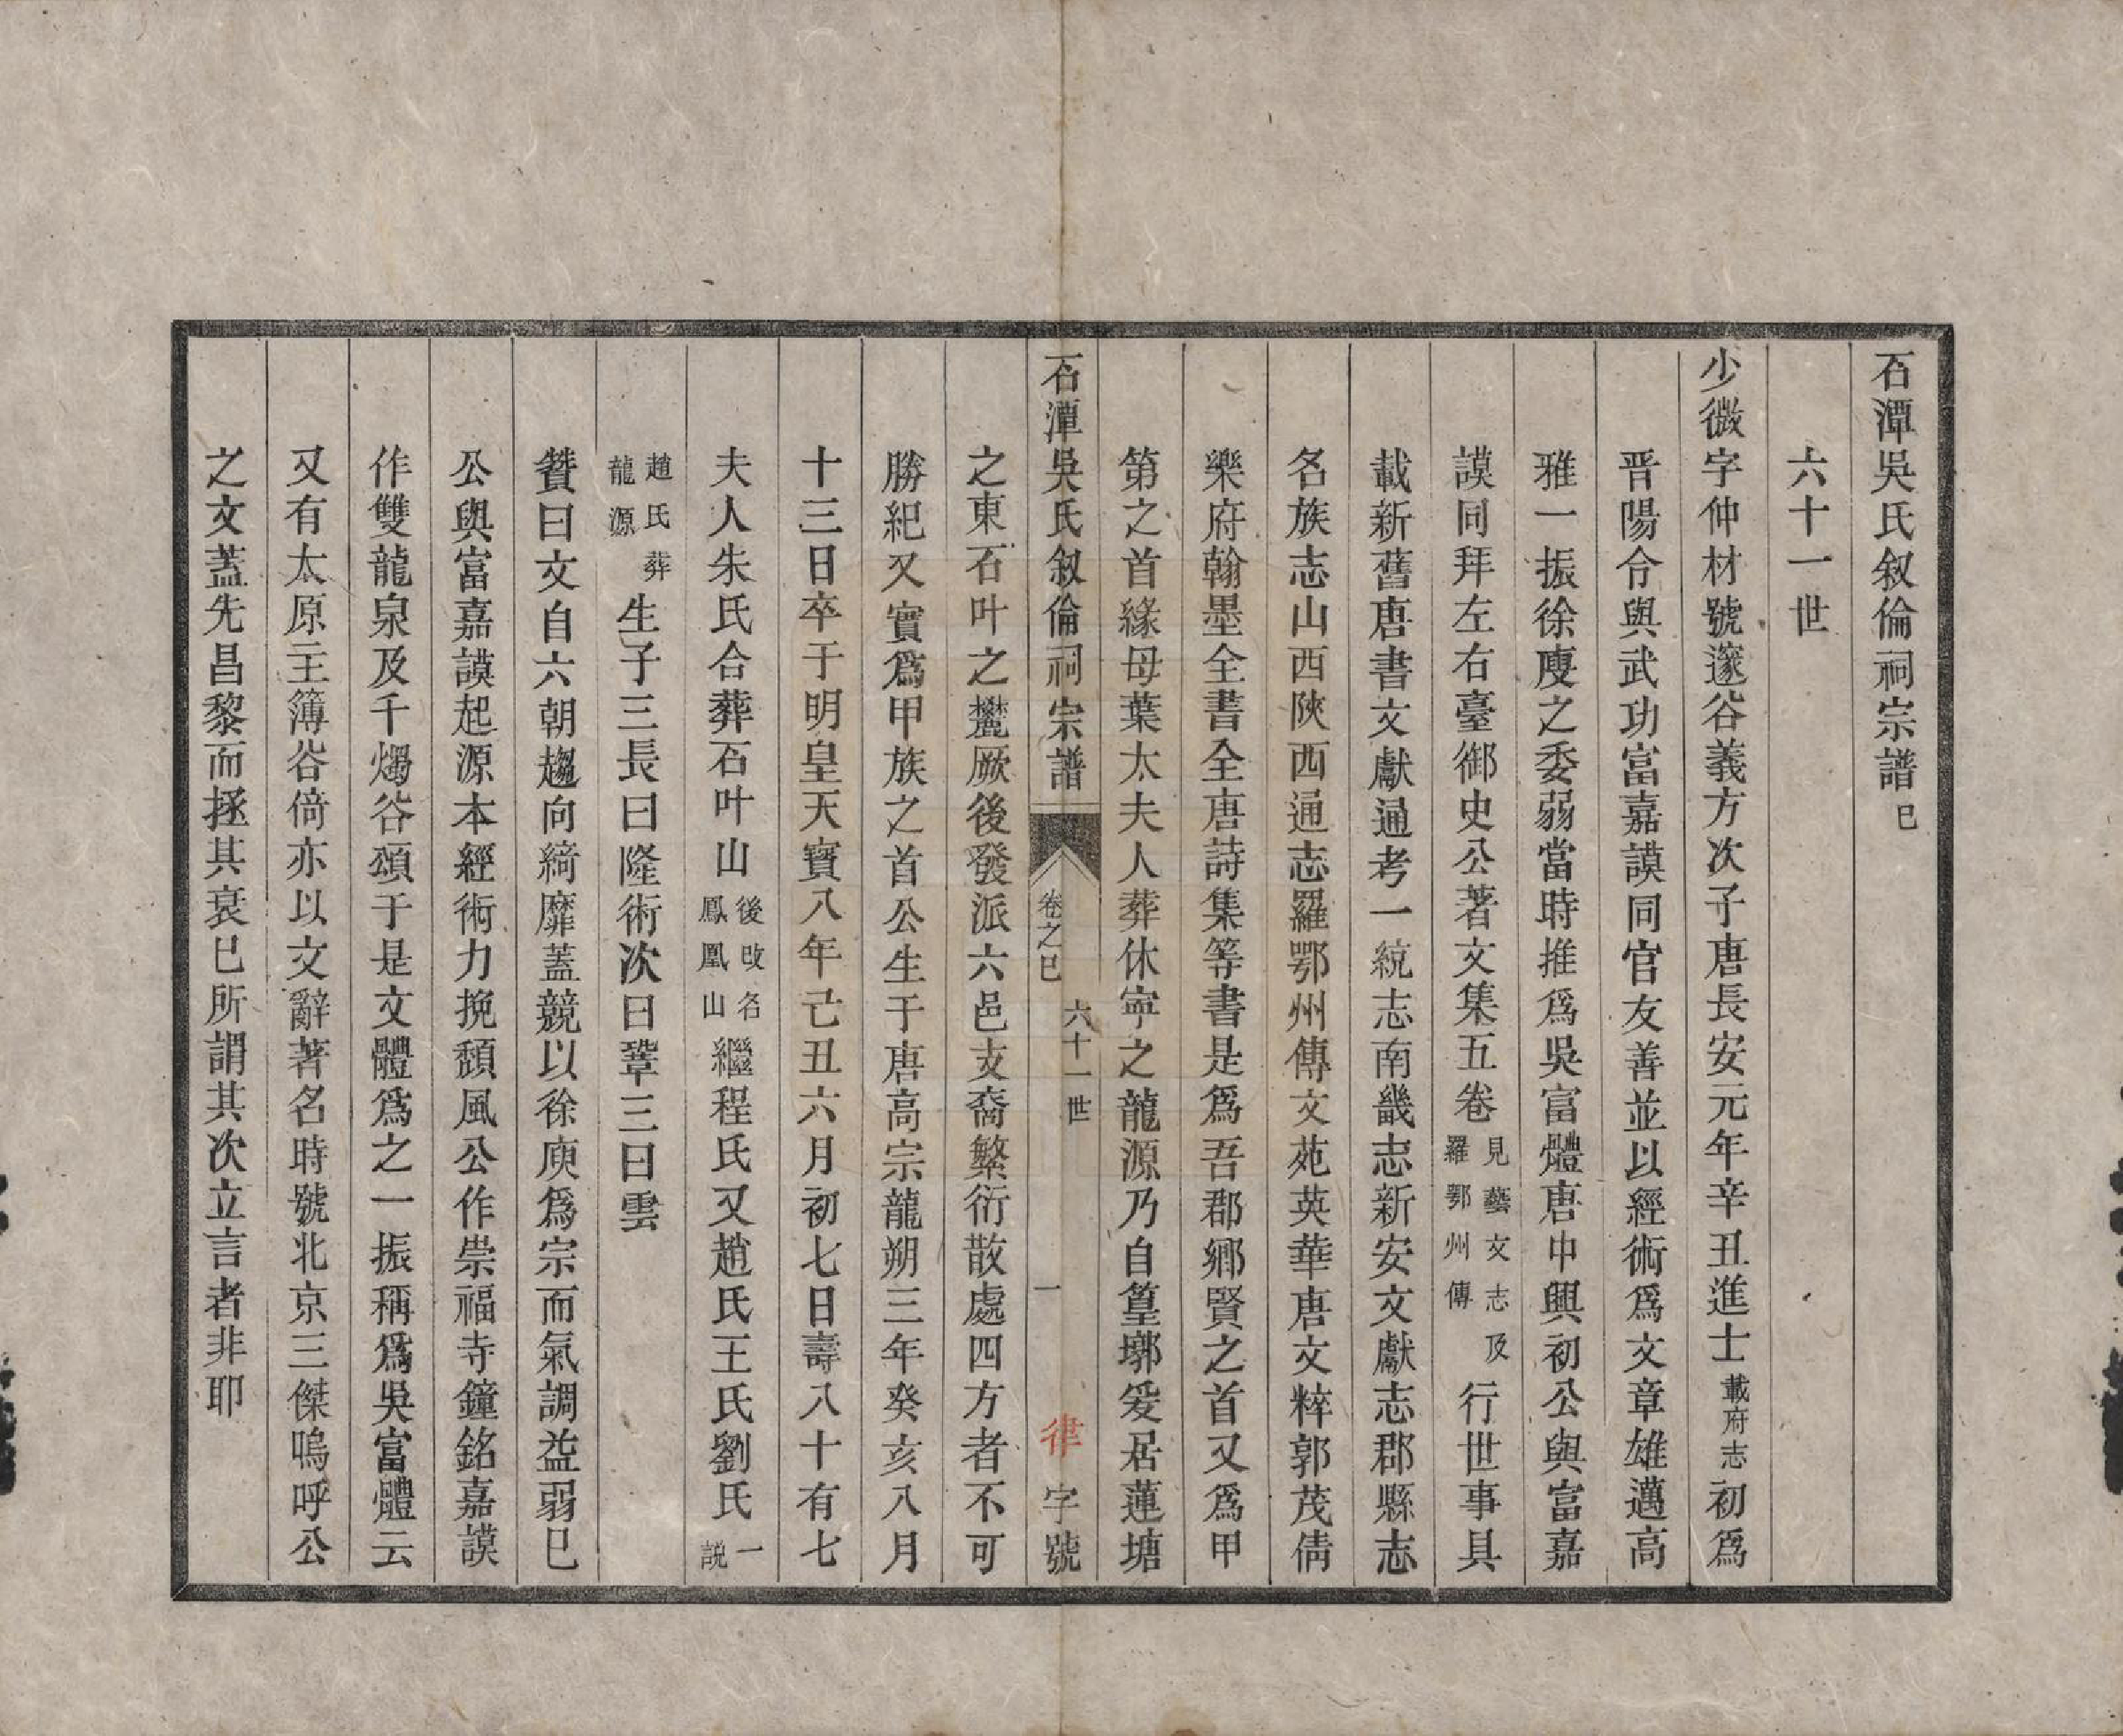 石潭吳氏叙倫祠宗譜 巳
六十一世
少微字仲材號邃谷義方次子唐長安元年辛丑進士載府志初爲
晋陽令與武功富嘉謨同官友善並以經術爲文章雄邁高
雅一振徐庾之委弱當時推爲吳富體唐中興初公與富嘉
謨同拜左右臺御史公著文集五卷見藝文志及羅鄂州傳行世事具
載新舊唐書文獻通考一統志南畿志新安文獻志郡縣志
名族志山西陝西通志羅鄂州傳文苑英華唐文粹郭茂倩
樂府翰墨全書全唐詩集等書是爲吾郡鄉賢之首又爲甲
第之首緣母葉太夫人葬休寧之龍源乃自篁墩爰居蓮塘
石潭吳氏叙倫祠宗譜 卷之巳 六十一世 一 律字號
之東石叶之麓厥後發派六邑支裔繁衍散處四方者不可
勝紀又實爲甲族之首公生于唐高宗龍朔三年癸亥八月
十三日卒于明皇天寳八年己丑六月初七日壽八十有七
夫人朱氏合葬石叶山後改名鳳凰山繼程氏又趙氏王氏劉氏一説
趙氏葬龍源生子三長曰隆術次曰鞏三曰雲
贊曰文自六朝趨向綺靡蓋競以徐庾爲宗而氣調益弱巳
公與富嘉謨起源本經術力挽頽風公作崇福寺鐘銘嘉謨
作雙龍泉及千燭谷頌于是文體爲之一振稱爲吳富體云
又有太原主簿谷倚亦以文辭著名時號北京三傑嗚呼公
之文蓋先昌黎而拯其衰巳所謂其次立言者非耶